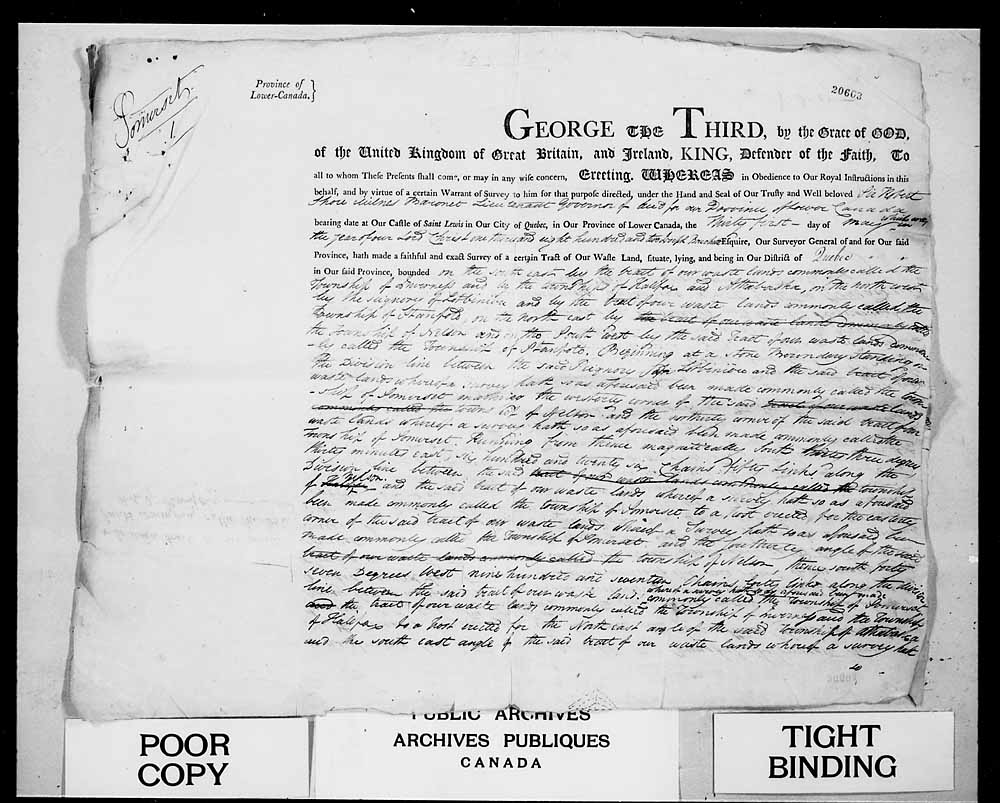 Somerset
1
Province of
Lower-Canada. }
20603
GEORGE THE THIRD, by the Grace of GOD,
of the United Kingdom of Great Britain, and Ireland, KING, Defender of the Faith, To
all to whom These Presents shall come, or may in any wise concern, Greeting. WHEREAS in Obedience to Our Royal Instructions in this
behalf, and by virtue of a certain Warrant of Survey to him for that purpose directed, under the Hand and Seal of Our Trusty and Well beloved Sir Robert
Shore Milnes Baronet Lieutenant Governor of and for our Province of Lower Canada
bearing date at Our Castle of Saint Lewis in Our City of Quebec, in Our Province of Lower Canada, the Thirty first day of May in
the year of our Lord Christ one thousand eight hundred and Esquire, Our Surveyor General of and for Our said
Province, hath made a faithful and exact Survey of a certain Tract of Our Waste Land, situate, lying, and being in Our District of Quebec
in Our said Province, bounded on the south east by the tract of our waste lands commonly called the
Township of Inverness and by the townships of Halifax and Arthabaska, on the north west
by the Seigniory of Lotbiniere and by the tract of our waste lands commonly called the
Township of Stanfold on the north east by the tract of our waste lands commonly called
the township of Nelson and on the South west by the said tract of our waste lands common
-ly called the Township of Stanfold. Beginning at a Stone Boundary standing on
the Division line between the said Seigniory of Lotbiniere and the said tract of our
waste lands whereof a survey hath so as aforesaid been made commonly called the town
-ship of Somerset marking the westerly corner of the said tract of our waste lands
commonly called the township of Nelson and the northerly corner of the said tract of our
waste lands whereof a survey hath so as aforesaid been made commonly called the
Township of Somerset. Running from thence magnetically South thirty three degrees
thirty minutes east, six hundred and twenty six Chains fifty links along the
Division line between the said tract of our waste lands commonly called the township
of Nelson and the said tract of our waste lands whereof a survey hath so as aforesaid
been made commonly called the township of Somerset to a post erected for the easterly
corner of the said tract of our waste lands whereof a Survey hath so as aforesaid been
made commonly called the Township of Somerset and the southerly angle of the said
tract of our waste lands commonly called the township of Nelson, thence south forty
seven Degrees West nine hundred and seventeen Chains forty links along the division
line between the said tract of our waste land whereof a survey hath so as aforesaid been made
commonly called the township of Somerset
and the tract of our waste lands commonly called the Township of Inverness and the Township
of Halifax to a Post erected for the North east angle of the said township of Arthabaska
and the south east angle of the said tract of our waste lands whereof a survey hath
so
PUBLIC ARCHIVES
ARCHIVES PUBLIQUES
CANADA
POOR
COPY
TIGHT
BINDING